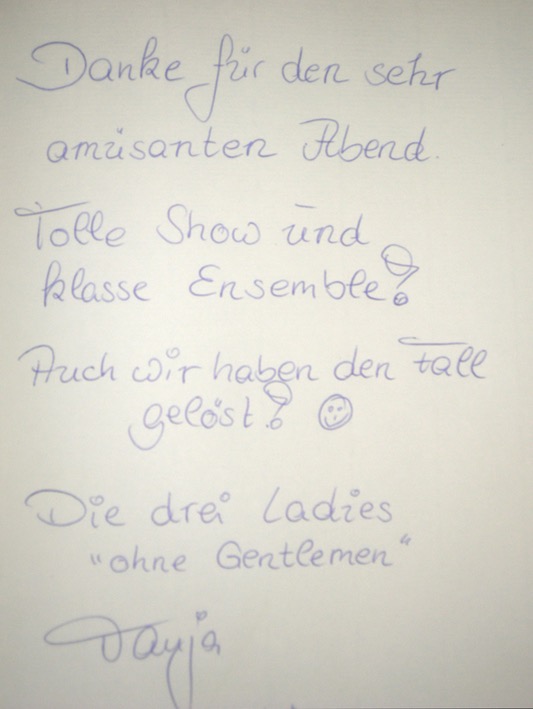 Danke für den sehr
amüsanten Abend.
Tolle Show und
klasse Ensemble!
Auch wir haben den Fall
gelöst! ☺
Die drei Ladies
"ohne Gentlemen"